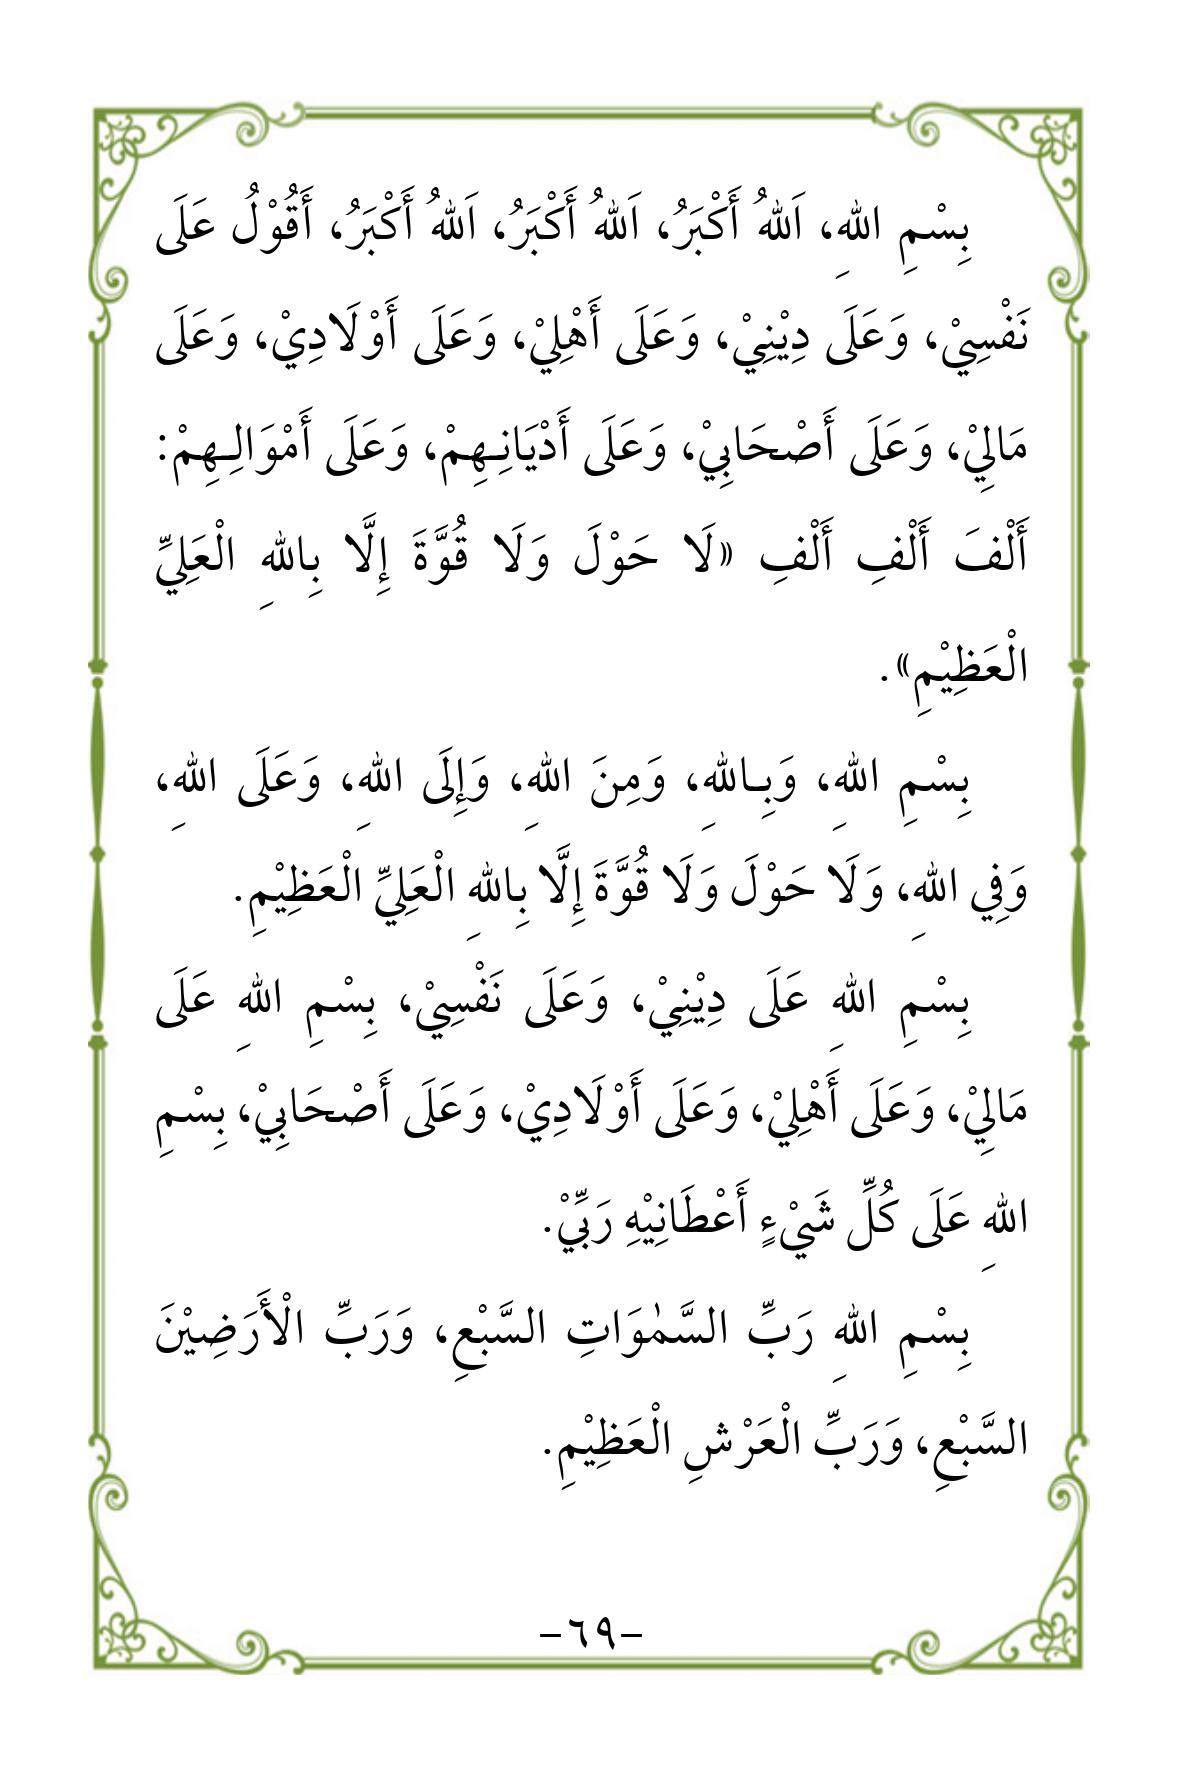 بِسْمِ اللهِ، اَللهُ أَكْبَرُ، اَللهُ أَكْبَرُ، اَللهُ أَكْبَرُ، أَقُوْلُ عَلَى
نَفْسِيْ، وَعَلَى دِيْنِيْ، وَعَلَى أَهْلِيْ، وَعَلَى أَوْلَادِيْ، وَعَلَى
مَالِيْ، وَعَلَى أَصْحَابِيْ، وَعَلَى أَدْيَانِـهِمْ، وَعَلَى أَمْوَالِـهِمْ:
أَلْفَ أَلْفِ أَلْفِ «لَا حَوْلَ وَلَا قُوَّةَ إِلَّا بِاللهِ الْعَلِيِّ
الْعَظِيْمِ».
بِسْمِ اللهِ، وَبِـاللهِ، وَمِنَ اللهِ، وَإِلَى اللهِ، وَعَلَى اللهِ،
وَفِي اللهِ، وَلَا حَوْلَ وَلَا قُوَّةَ إِلَّا بِاللهِ الْعَلِيِّ الْعَظِيْمِ.
بِسْمِ اللهِ عَلَى دِيْنِيْ، وَعَلَى نَفْسِيْ، بِسْمِ اللهِ عَلَى
مَالِيْ، وَعَلَى أَهْلِيْ، وَعَلَى أَوْلَادِيْ، وَعَلَى أَصْحَابِيْ، بِسْمِ
اللهِ عَلَى كُلِّ شَيْءٍ أَعْطَانِيْهِ رَبِّيْ.
بِسْمِ اللهِ رَبِّ السَّمٰوَاتِ السَّبْعِ، وَرَبِّ الْأَرَضِيْنَ
السَّبْعِ، وَرَبِّ الْعَرْشِ الْعَظِيْمِ.
-٦٩-